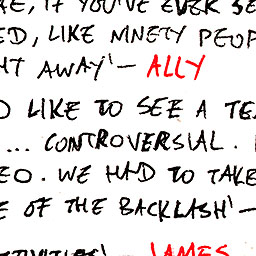 , IF YOU'VE EVER SE
ED, LIKE NINETY PEOP
HT AWAY' — ALLY
LIKE TO SEE A TE
... CONTROVERSIAL.
EO. WE HAD TO TAKE
E OF THE BACKLASH' —
JAMES